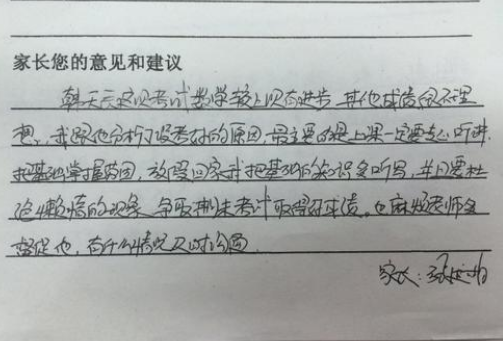 家长您的意见和建议
韩天云这次考试数学较上次有进步 其他成绩很不理
想,我跟他分析了没考好的原因,最主要的是上课一定要专心听讲
把基础掌握巩固,放假回家我把基础的知识多听写,并且要杜
绝懒惰的现象 争取期末考试取得好成绩。也麻烦老师多
督促他,有什么情况及时沟通
家长: